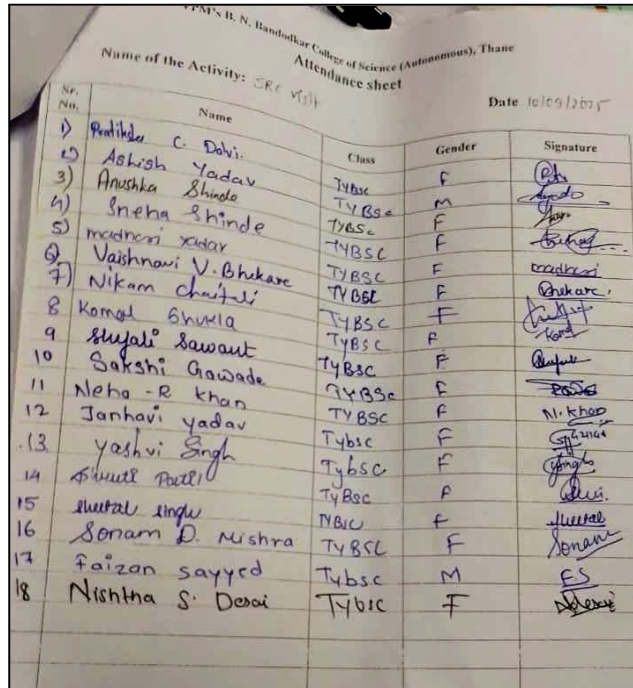 VPM's B. N. Bandodkar College of Science (Autonomous), Thane
Attendance sheet
Name of the Activity: SRC Visit
Date 10/09/2025
Sr. No. Name Class Gender Signature
1) Pratiksha C. Dalvi. TyBsc F
2) Ashish Yadav TyBSc M
3) Anushka Shinde TYBSc F
4) Sneha Shinde TYBSC F
5) madhavi yadav TYBSC F madhavi
6) Vaishnavi V. Bhekare TYBSC F Bhekare.
7) Nikam Chaitali TyBSC F
8 Komal Shukla TyBSC F Komal
9 Shejali Sawant TyBSC F
10 Sakshi Gawade TyBSc F
11 Neha - R Khan TYBSC F N. Khan
12 Janhavi yadav Tybsc F
13. yashvi Singh TybSC F
14 Patil TyBSC F
15 sheetal singh TYBSC F sheetal
16 Sonam D. Mishra TyBSC F Sonam
17 Faizan Sayyed Tybsc M FS
18 Nishtha S. Desai Tybsc F